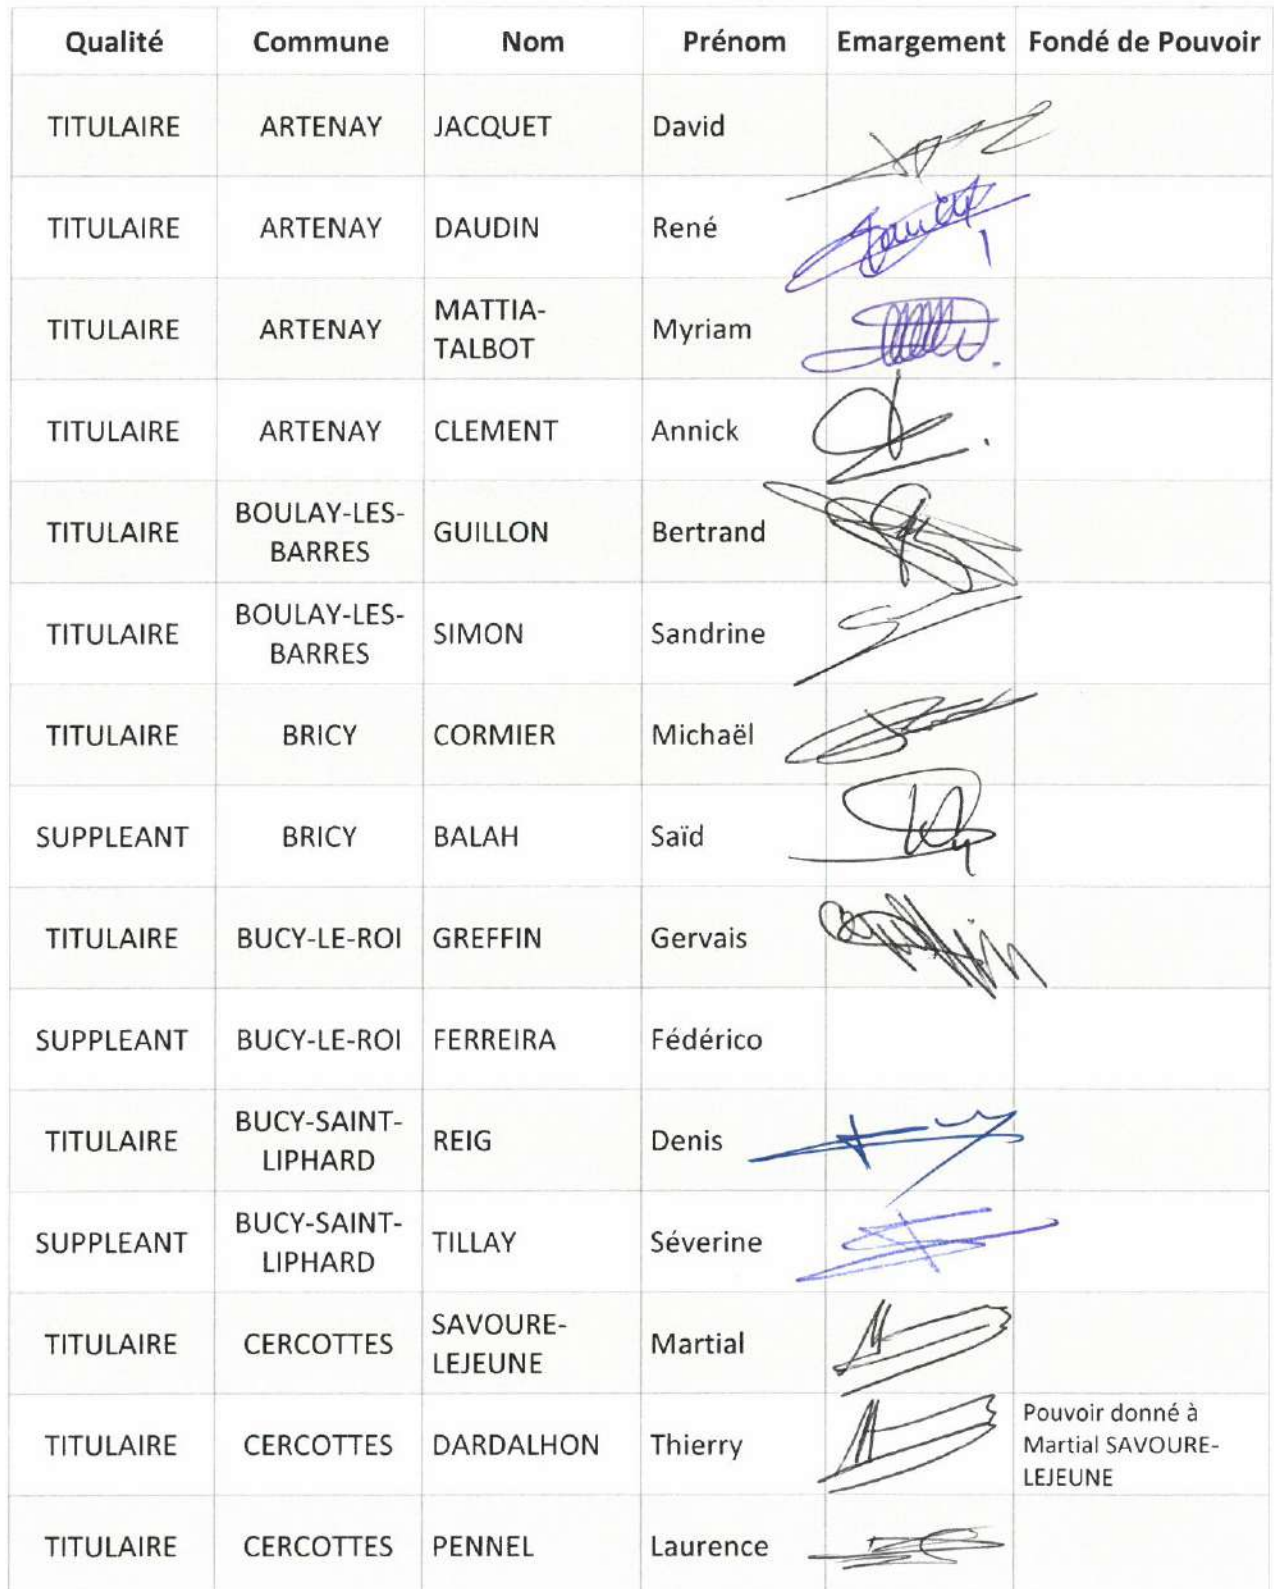 Qualité Commune Nom Prénom Emargement Fondé de Pouvoir
TITULAIRE ARTENAY JACQUET David
TITULAIRE ARTENAY DAUDIN René
TITULAIRE ARTENAY MATTIA-
TALBOT Myriam
TITULAIRE ARTENAY CLEMENT Annick
TITULAIRE BOULAY-LES-
BARRES GUILLON Bertrand
TITULAIRE BOULAY-LES-
BARRES SIMON Sandrine
TITULAIRE BRICY CORMIER Michaël
SUPPLEANT BRICY BALAH Saïd
TITULAIRE BUCY-LE-ROI GREFFIN Gervais
SUPPLEANT BUCY-LE-ROI FERREIRA Fédérico
TITULAIRE BUCY-SAINT-
LIPHARD REIG Denis
SUPPLEANT BUCY-SAINT-
LIPHARD TILLAY Séverine
TITULAIRE CERCOTTES SAVOURE-
LEJEUNE Martial
TITULAIRE CERCOTTES DARDALHON Thierry Pouvoir donné à
Martial SAVOURE-
LEJEUNE
TITULAIRE CERCOTTES PENNEL Laurence